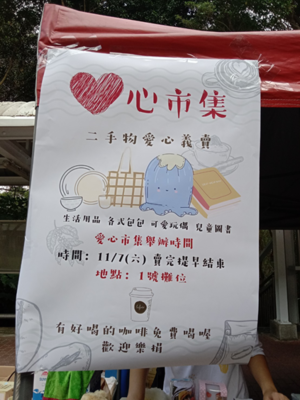 心市集
二手物愛心義賣
生活用品 各式包包 可愛玩偶 兒童圖書
愛心市集舉辦時間
時間: 11/7(六) 賣完提早結束
地點: 1號攤位
有好喝的咖啡免費喝喔
歡迎樂捐